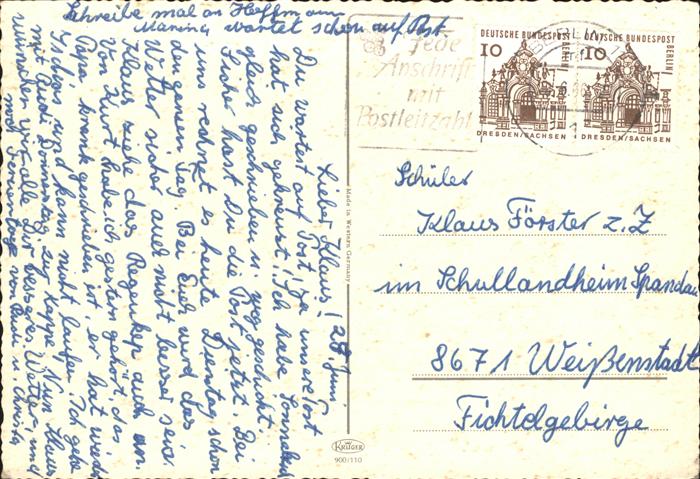 Schreibe mal an Hoffmann
Manina wartet schon auf Post.
Lieber Klaus! 28. Juni
Du wartest auf Post! Ja unsere Post
hat sich gekreuzt! Ich habe Sonnabend
gleich geschrieben u. weggeschickt.
Lieber hast Du die Post jetzt. Bei
uns rechnet es heute Dienstag schon
den ganzen Tag. Bei Euch wird das
Wetter sicher auch nicht besser sein.
Klaus ziehe das Regencape auch an.
Von Kurt habe ich gestern gehört, das
Papa krank geschrieben ist, er hat wieder
Ischias und kann nicht laufen. Ich gehe
mit Rudi Donnerstag zur Kappe. Nun Klaus
wünschen wir alle Dir besseres Wetter, und
Mutti u. Christa
Jede
Anschrift
mit
Postleitzahl
DEUTSCHE BUNDESPOST
BERLIN
10
DRESDEN/SACHSEN
DEUTSCHE BUNDESPOST
BERLIN
10
DRESDEN/SACHSEN
Made in Western Germany
KRÜGER
900/110
Schüler
Klaus Förster z. Z
im Schullandheim Spandau
8671 Weißenstadt
Fichtelgebirge